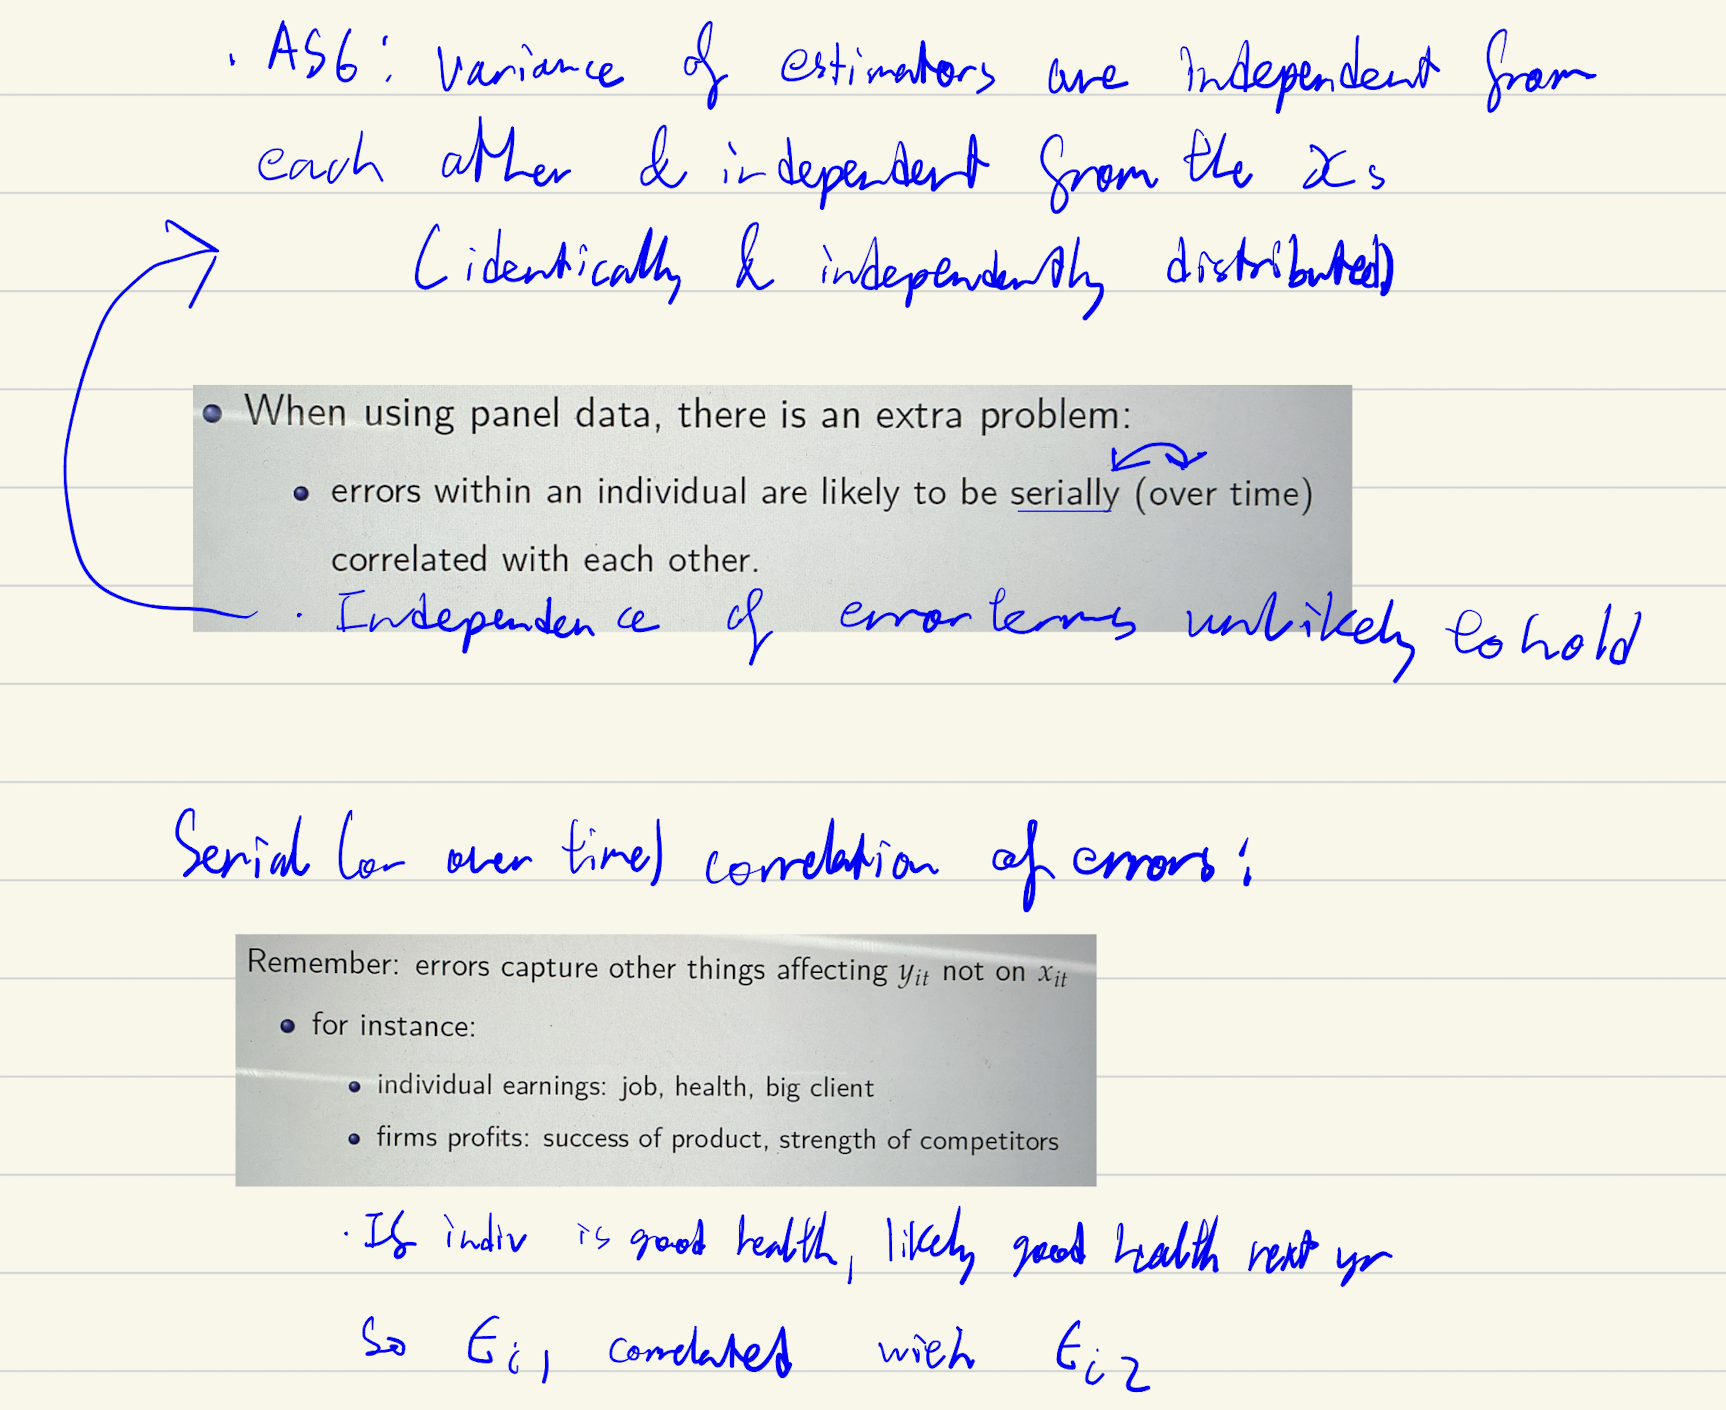 . AS6: variance of estimators are independent from
each other & independent from the xs
(identically & independently distributed)
When using panel data, there is an extra problem:
errors within an individual are likely to be serially (over time)
correlated with each other.
. Independence of error terms unlikely to hold
Serial (or over time) correlation of errors:
Remember: errors capture other things affecting yit not on xit
for instance:
individual earnings: job, health, big client
firms profits: success of product, strength of competitors
. If indiv is good health, likely good health next yr
So Ei1 correlated with Ei2